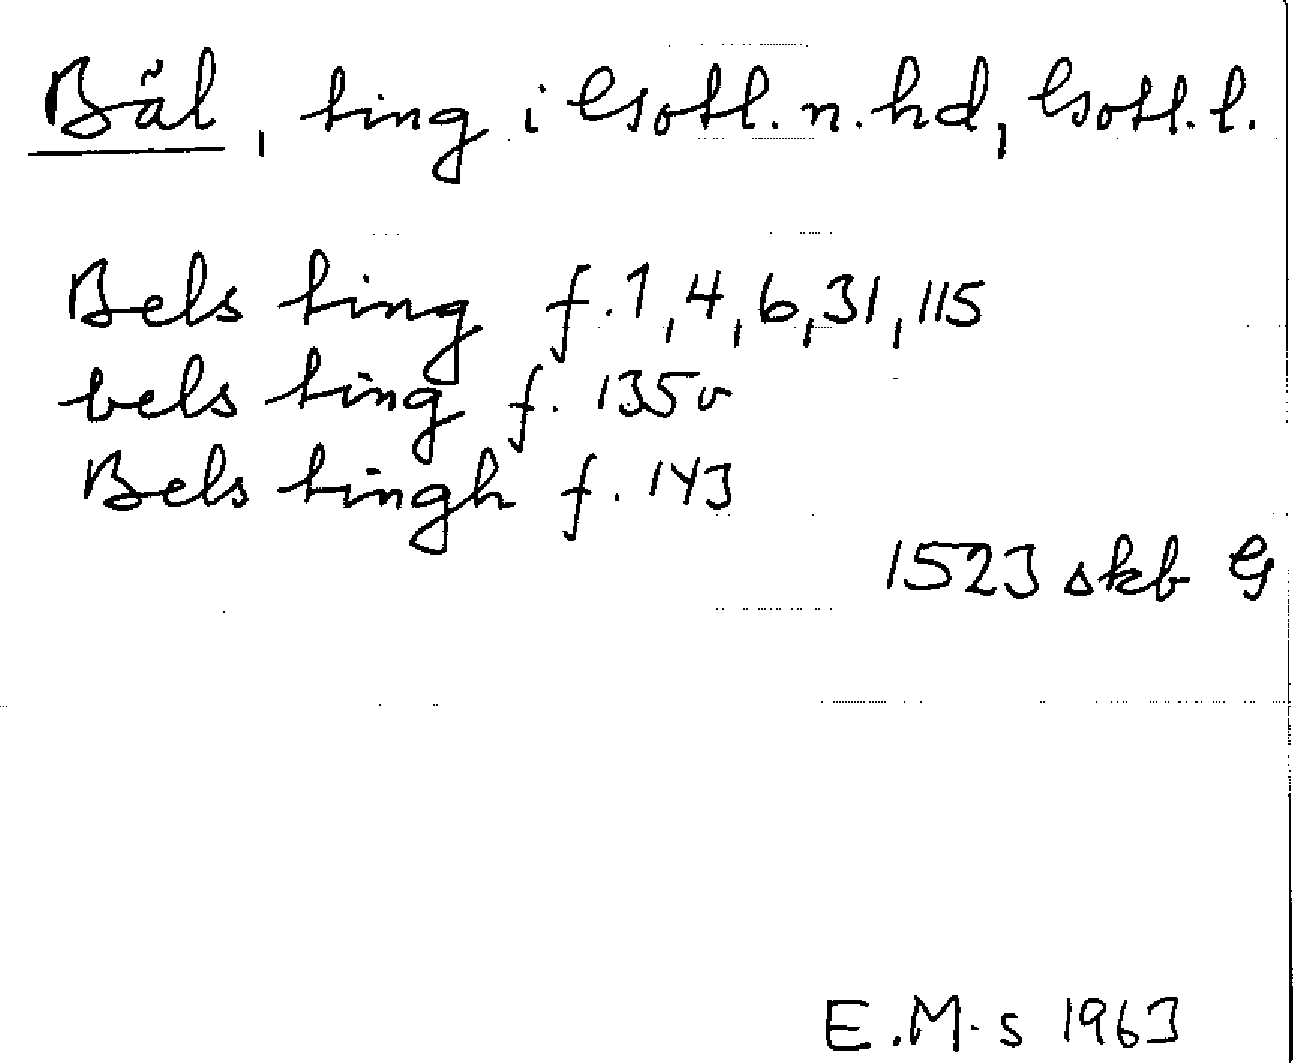 Bäl, ting i Gotl. n. hd, Gotl. l.
Bels ting f. 1, 4, 6, 31, 115
bels ting f. 135v
Bels tingh f. 143
1523 skb G
E.M-s 1963